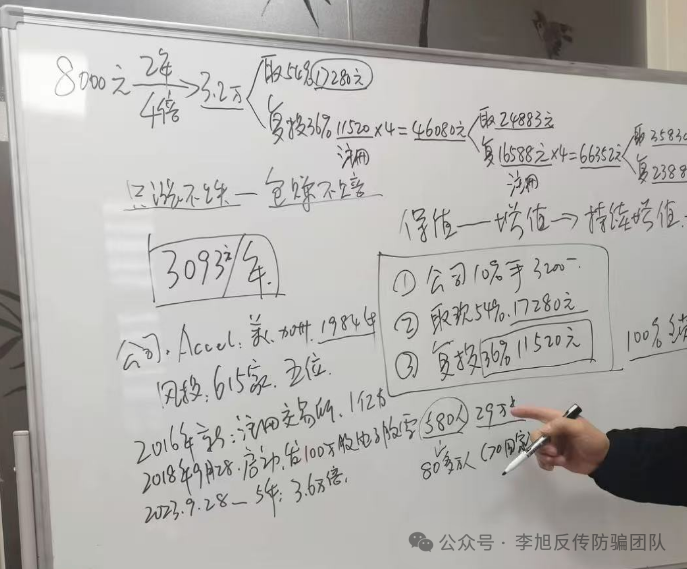 8000元 2年 4倍 → 3.2万
取54% 17280元
复投36% 11520×4=46080元
注册
取24883元
复16588元×4=66352元
注册
取3583
复2388
只涨不跌一包赚不赔
保值—增值→持续增值
3093元/年
① 公司10%手3200
② 取现54%.17280元
③ 复投36% 11520元
100%
公司.Accel.美.加州.1984年
风投:615家.五位.
2016年:注册交易所.1亿
580人 29万
2018年9月28.启动.发100万股电子股
80多万人 (70国家)
2023.9.28—5年:3.6万倍.
公众号·李旭反传防骗团队